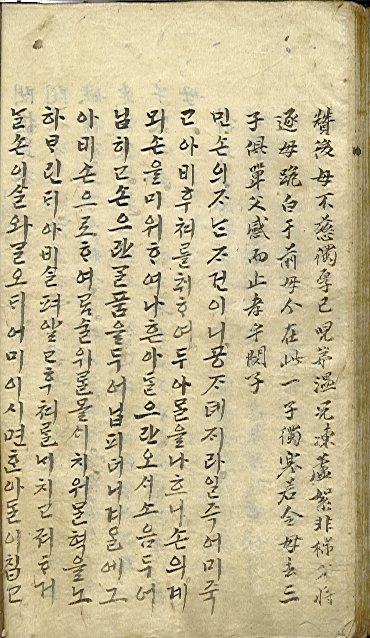 贊後母不慈獨厚己兒弟溫兄凍蘆絮非棉父將
逐母跪白于前母今在此一子獨寒若令母去三
子俱單父感而止孝乎閔子
민손의ᄌᆞᄂᆞᆫᄌᆞ건이니공ᄌᆞ데ᄌᆞ라일즉어미죽
고아비후쳐를취ᄒᆞ여두아ᄃᆞᆯ을나흐니손의계
뫼손을미워ᄒᆞ여나흔아ᄃᆞᆯ으란오서소음두어
닙히고손으란ᄀᆞᆯ품을두어닙피더니겨ᄋᆞᆯ에그
아비손으로ᄒᆞ여곰술위를몰시치워ᄆᆞᆯ혁을노
하ᄇᆞ린ᄃᆡ아비ᄉᆞᆯ펴알고후쳐를내치고져ᄒᆞ거
ᄂᆞᆯ손이ᄉᆞᆯ와ᄀᆞᆯ오ᄃᆡ어미이시면ᄒᆞᆫ아ᄃᆞᆯ이칩고